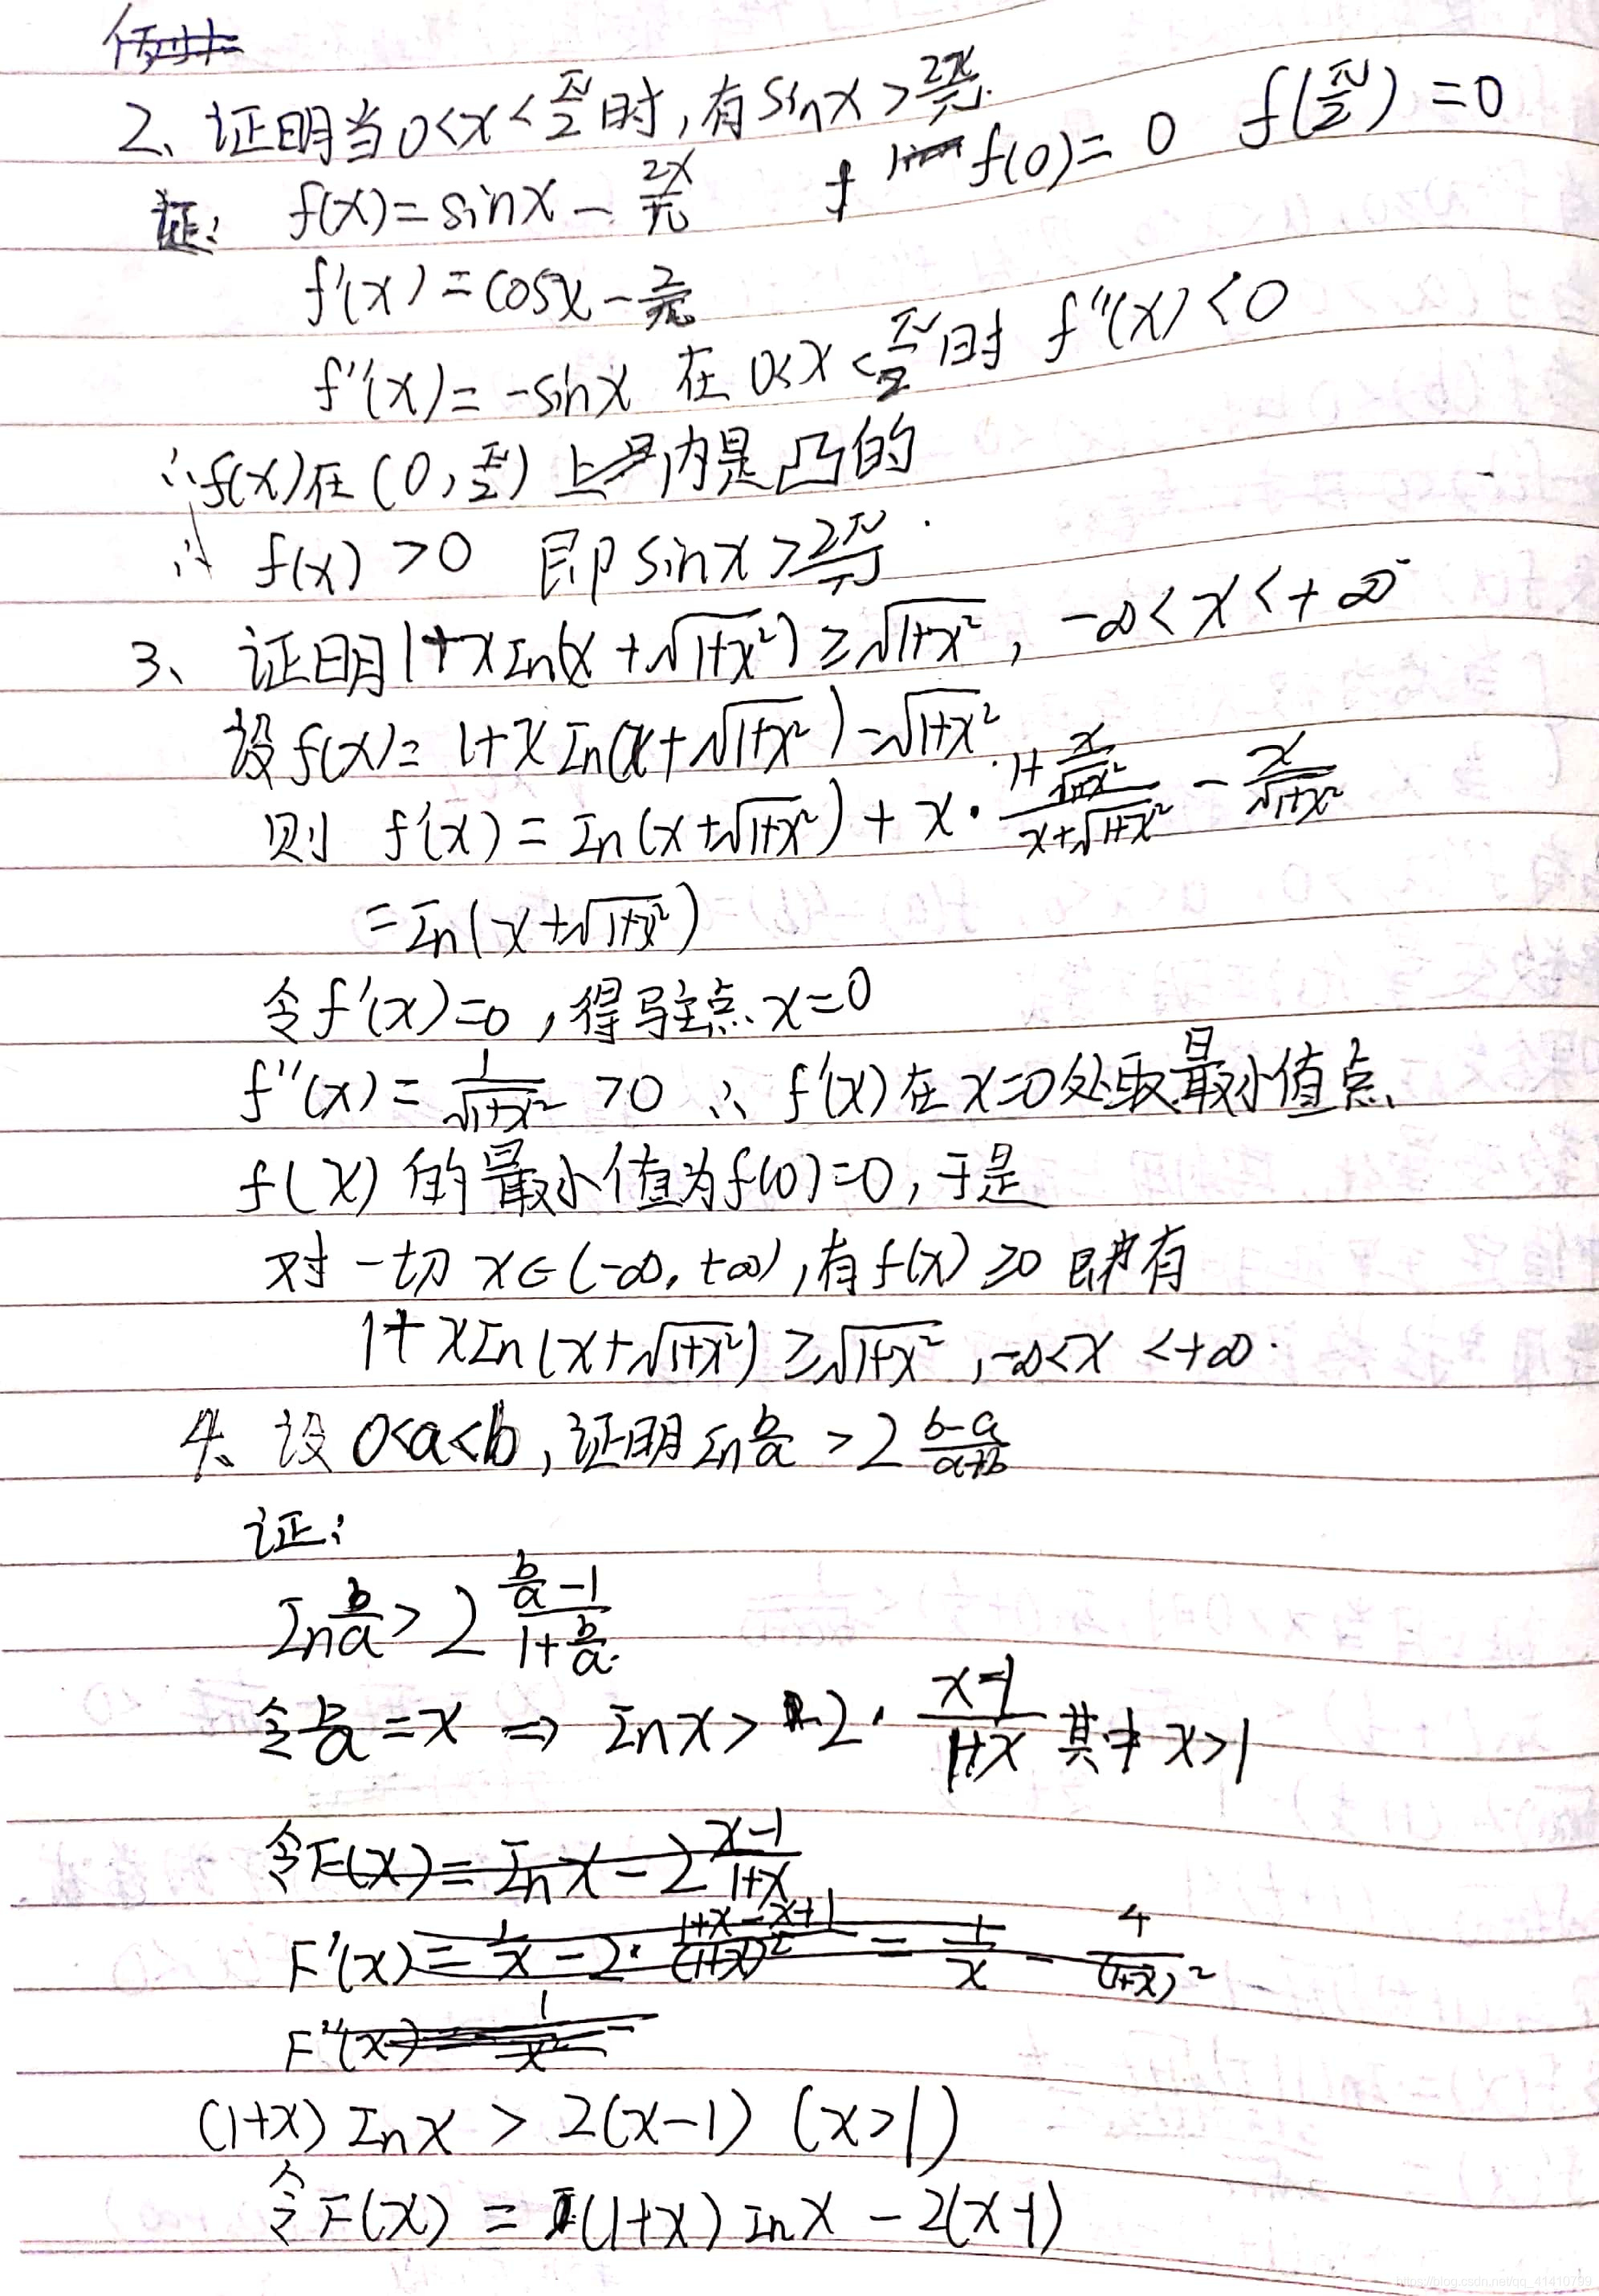 2、证明当0<x<π/2时,有sinx>2x/π.
证: f(x)=sinx-2x/π f(0)=0 f(π/2)=0
f'(x)=cosx-2/π
f''(x)=-sinx 在0<x<π/2时 f''(x)<0
∴f(x)在(0,π/2)内是凸的
∴ f(x)>0 即sinx>2x/π.
3、证明1+xIn(x+√(1+x²))≥√(1+x²), -∞<x<+∞
设f(x)=1+xIn(x+√(1+x²))-√(1+x²)
则 f'(x)=In(x+√(1+x²))+x·(1+x/√(1+x²))/(x+√(1+x²))-x/√(1+x²)
=In(x+√(1+x²))
令f'(x)=0,得驻点x=0
f''(x)=1/√(1+x²)>0 ∴f'(x)在x=0处取最小值点
f(x)的最小值为f(0)=0,于是
对一切x∈(-∞,+∞),有f(x)≥0即有
1+xIn(x+√(1+x²))≥√(1+x²),-∞<x<+∞.
4、设0<a<b,证明In b/a>2 (b-a)/(a+b)
证:
In b/a>2 (b/a-1)/(1+b/a)
令b/a=x ⇒ Inx>2·(x-1)/(1+x) 其中x>1
令F(x)=Inx-2 (x-1)/(1+x)
F'(x)=1/x-2·(1+x-x+1)/(1+x)²=1/x-4/(1+x)²
F''(x)=1/x²-
(1+x)Inx>2(x-1) (x>1)
令F(x)=(1+x)Inx-2(x-1)
https://blog.csdn.net/qq_41410799